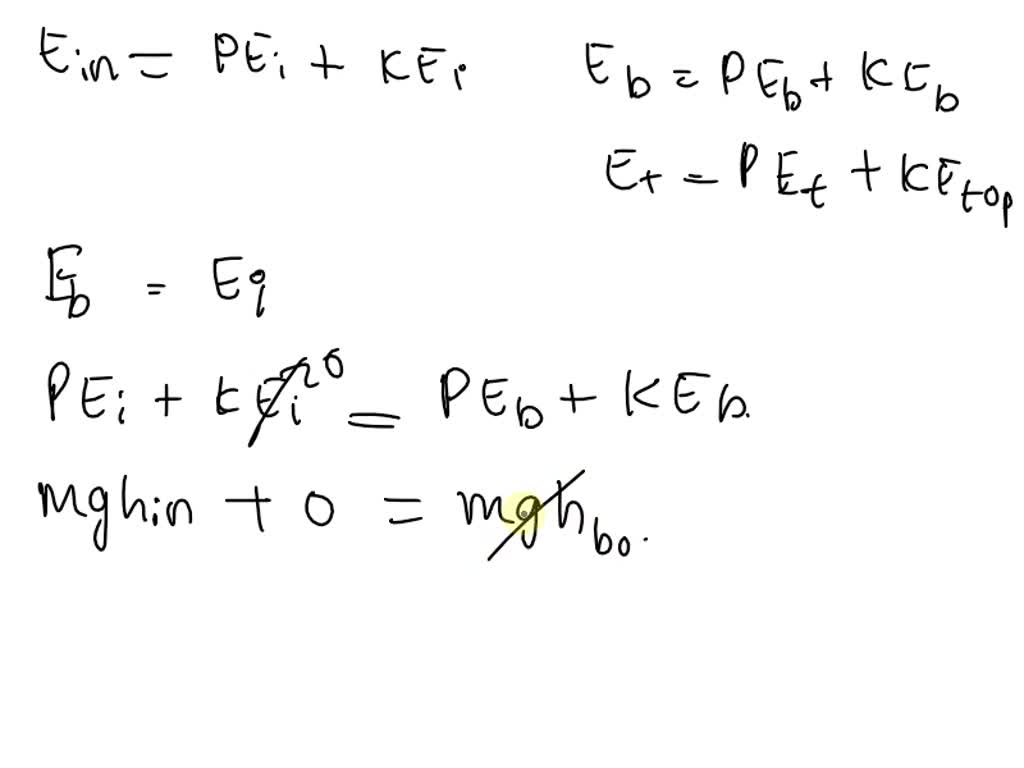 Ein = PEi + KEi
Eb = PEb + KEb
Et = PEt + KEtop
Eb = Ei
PEi + KEi 0 = PEb + KEb.
mghin + 0 = mghbo.